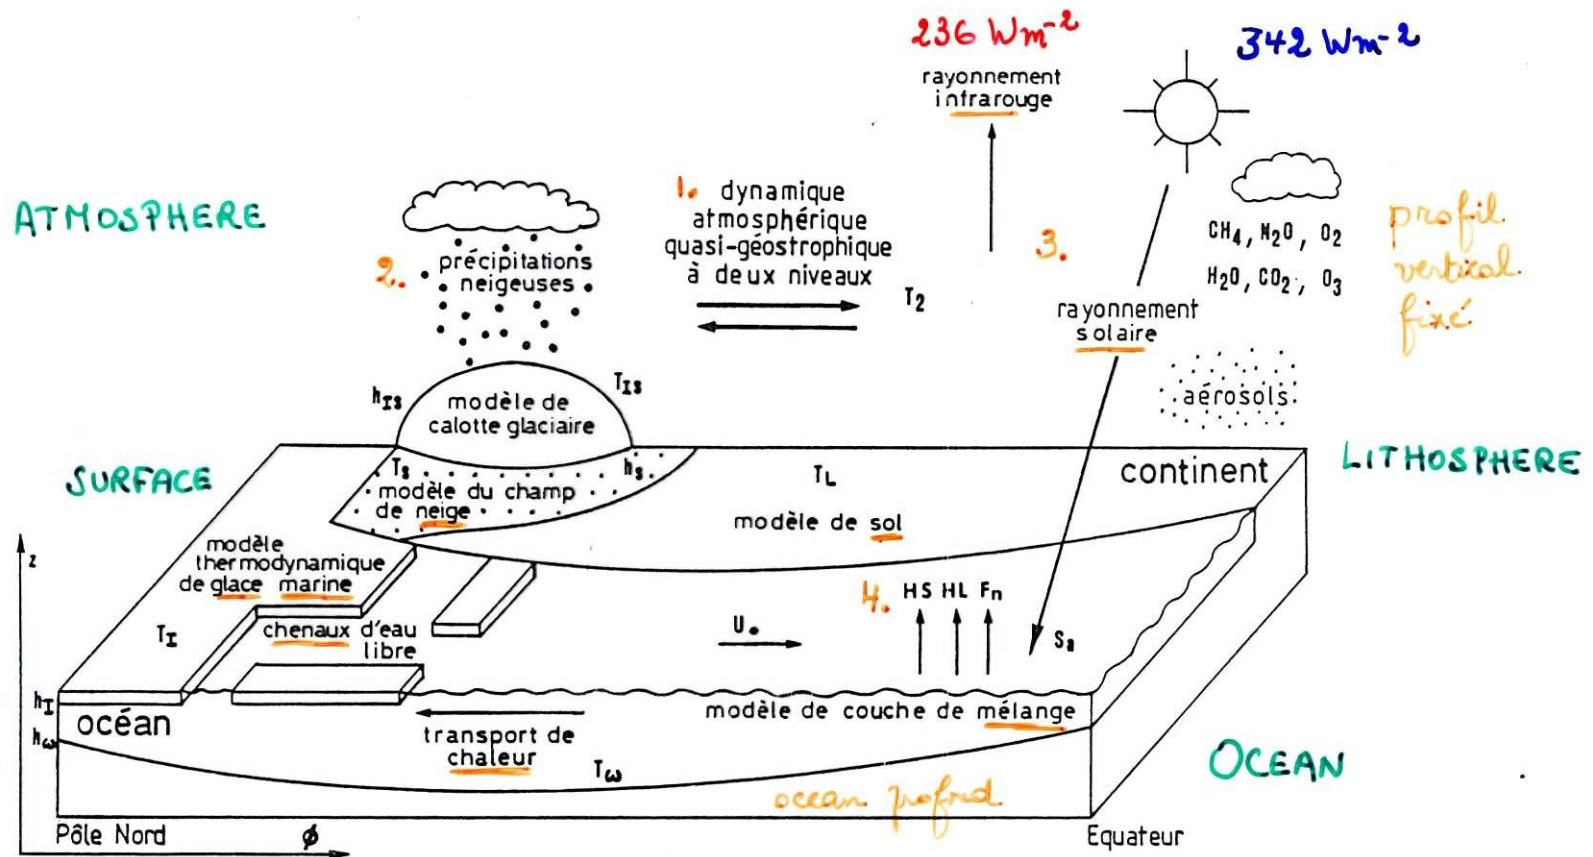 236 Wm⁻²
342 Wm⁻²
rayonnement
infrarouge
ATMOSPHERE
1. dynamique
atmosphérique
quasi-géostrophique
à deux niveaux
T₂
2. précipitations
neigeuses
3.
rayonnement
solaire
CH₄, N₂O, O₂
H₂O, CO₂, O₃
profil
vertical
fixé
aérosols
h_IS
T_IS
modèle de
calotte glaciaire
SURFACE
LITHOSPHERE
T_S
h_S
modèle du champ
de neige
T_L
continent
modèle de sol
z
modèle
thermodynamique
de glace marine
T_I
chenaux d'eau
libre
U₀
4. HS HL Fn
Sa
h_I
océan
h_ω
transport de
chaleur
modèle de couche de mélange
T_ω
OCEAN
ocean profond
Pôle Nord
ϕ
Equateur